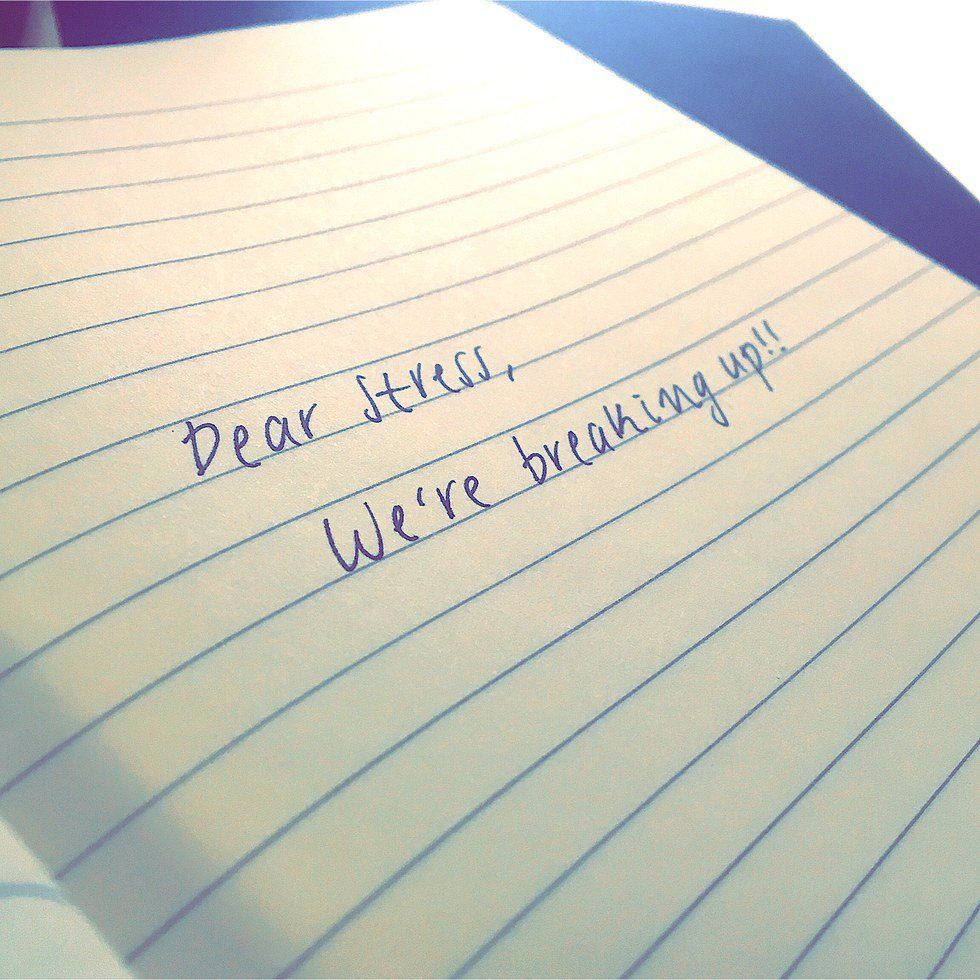 Dear Stress,
We're breaking up!!